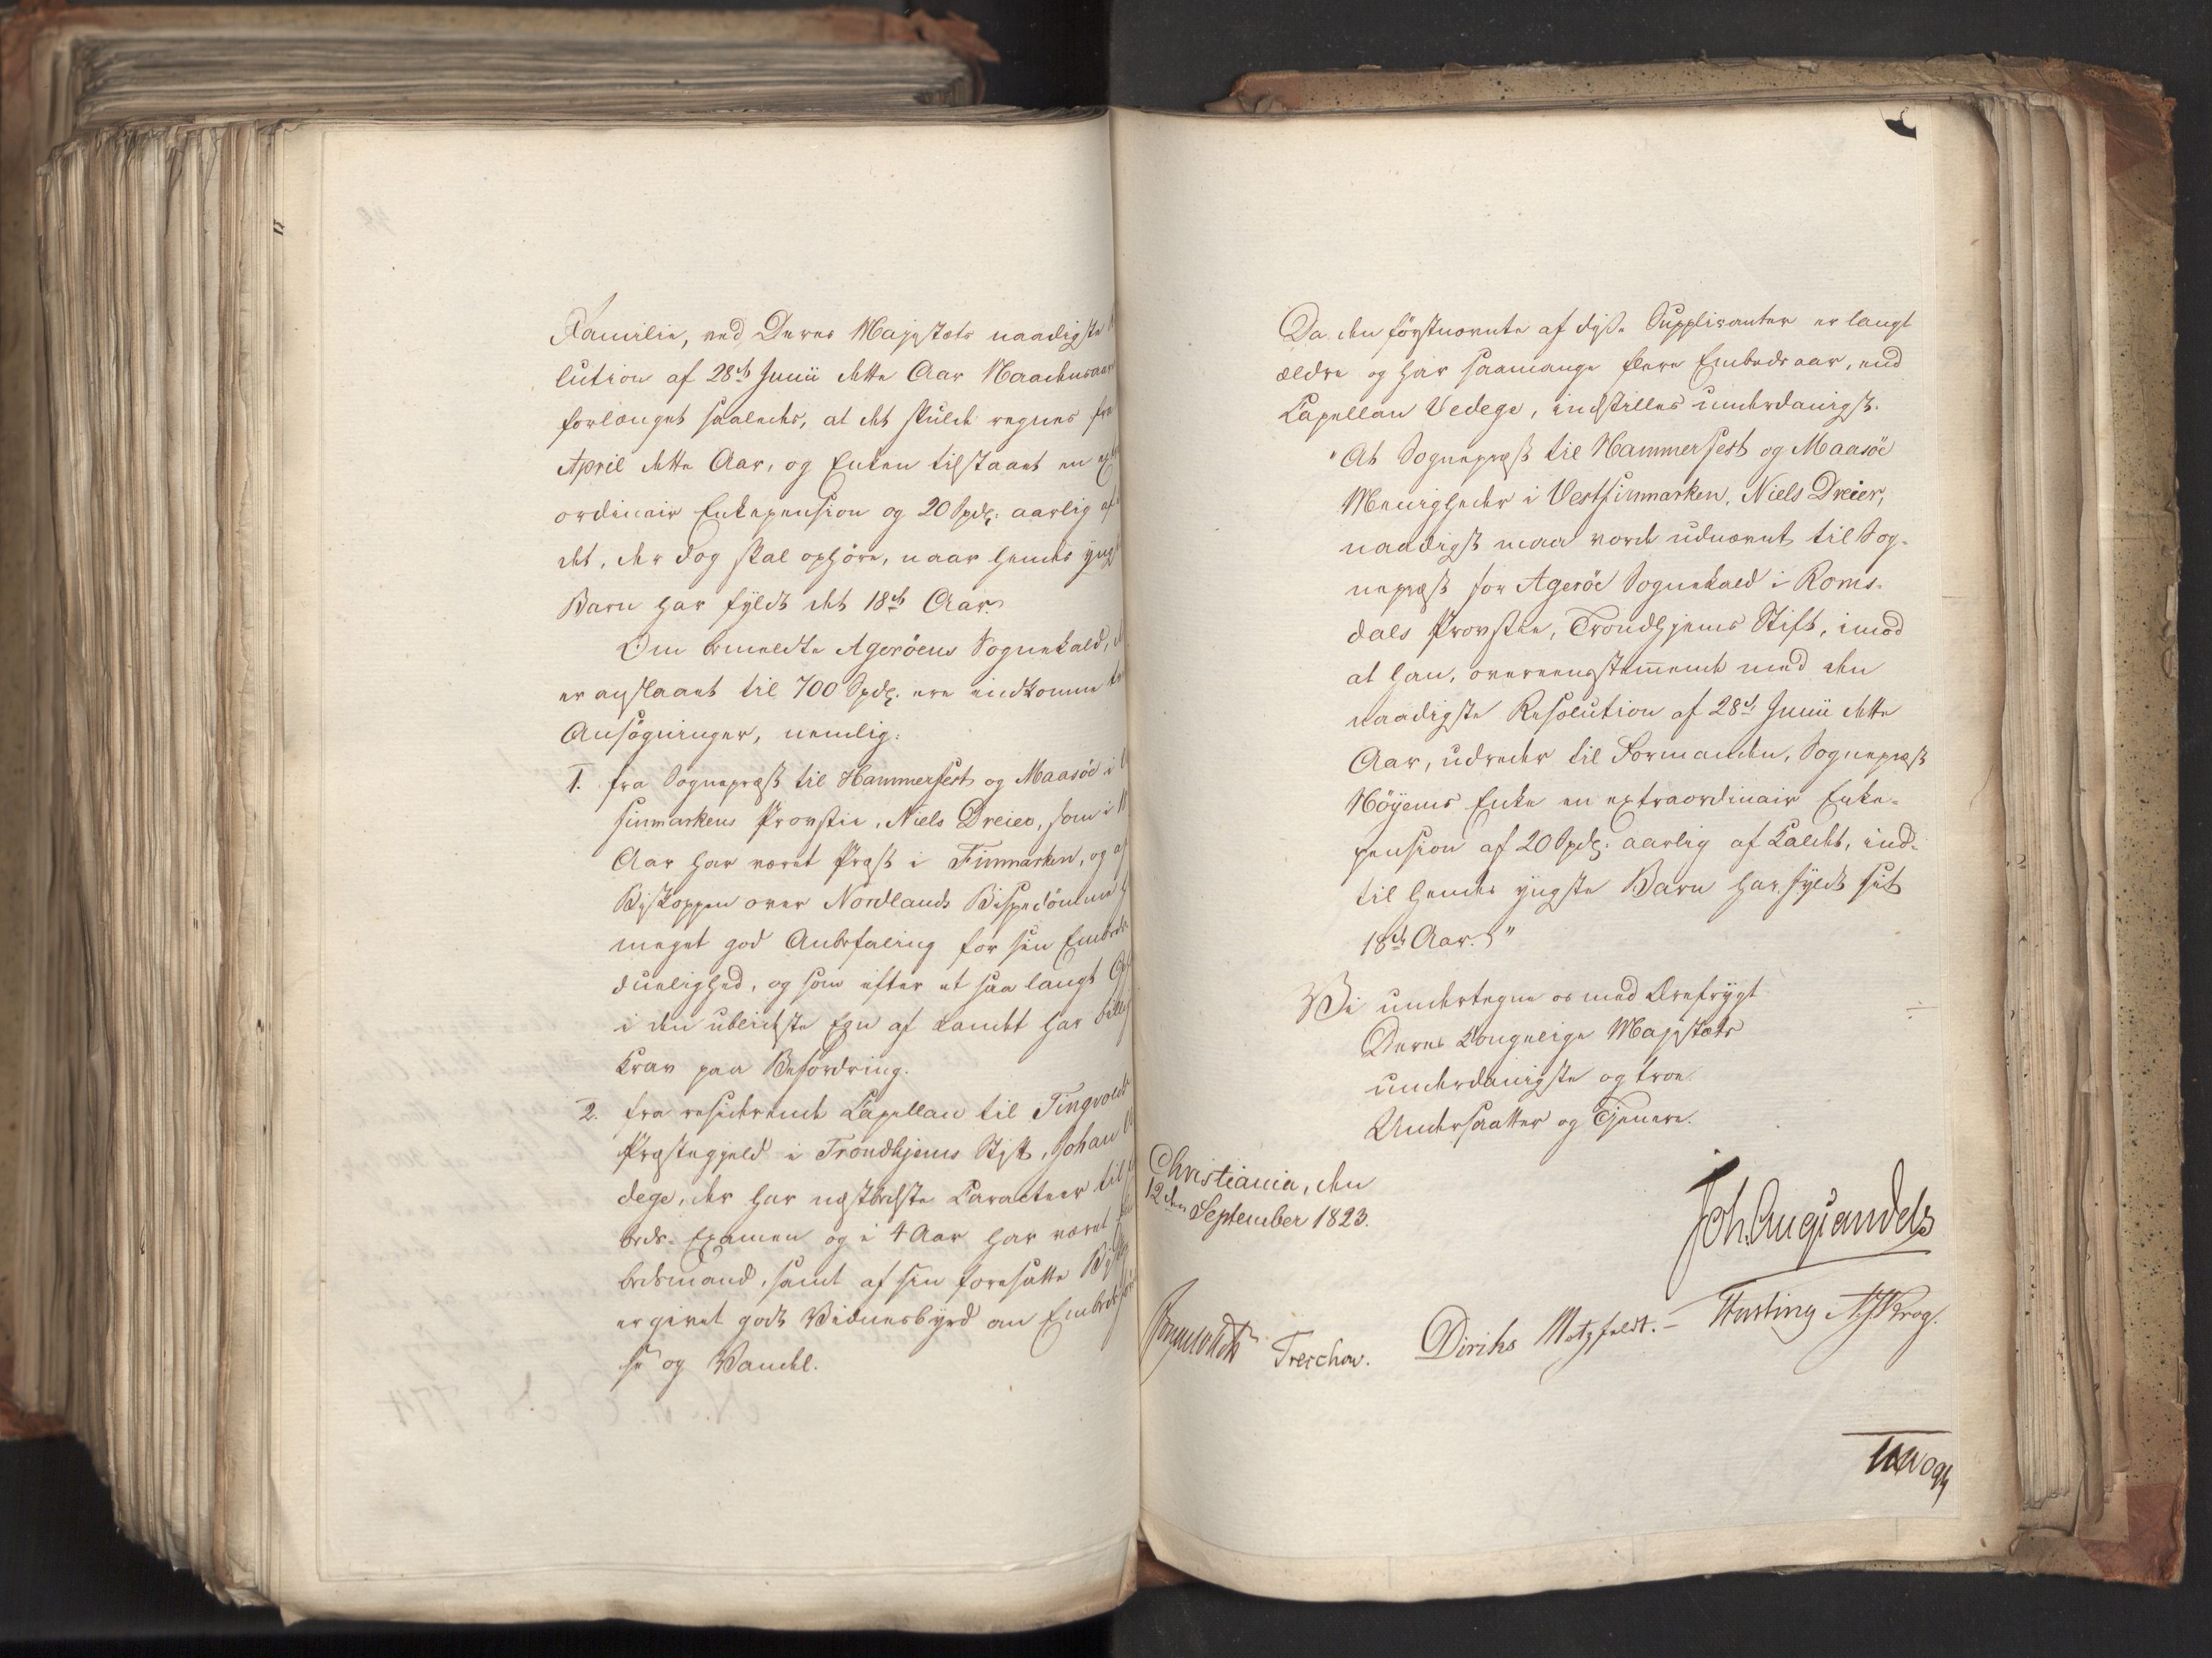 Familie, ved Deres Majestæts naadigste
lution af 28de Junii dette Aar Naadensaar
forlænget saaledes, at det skulde regnes fra
April dette Aar, og Enken tilstaaet en
ordinair Enkepension og 20 Spdlr: aarlig af
det, der dog skal ophöre, naar hendes yng
Barn har fyldt det 18de Aar.
Om bemeldte Ageröens Sognekald,
er anslaaet til 700 Spdlr. ere indkomne
Ansögninger, nemlig:
1. fra Sognepræst til Hammerfest og Maasöe i
finmarkens Provstie, Niels Dreier, som i
Aar har været Præst i Finmarken, og af
Biskoppen over Nordlands Bispedömme
meget god Anbefaling for sin Embeds-
duelighed, og som efter et saa langt
i den ublideste Egn af Landet har billig
Krav paa Befordring.
2. fra residerende Capellan til Tingvold
Præstegjeld i Trondhjems Stift, Johan
dege, der har næstbedste Caracteer til
beds-Examen og i 4 Aar har været
bedsmand, samt af sin foresatte
er givet godt Vidnesbyrd om Embedsföre
se og Vandel.
Da den förstnævnte af disse Supplicanter er langt
ældre og har saamange flere Embedsaar, end
Capellan Vedege, indstilles underdanigst:
"At Sognepræst til Hammerfest og Maasöe
Menigheder i Vestfinmarken, Niels Dreier,
naadigst maa vorde udnævnt til Sog-
nepræst for Ageröe Sognekald i Roms-
dals Provstie, Trondhjems Stift, imod
at han, overeensstemmende med den
naadigste Resolution af 28de Junii dette
Aar, udreder til Formanden, Sognepræst
Höyems Enke en extraordinair Enke-
pension af 20 Spdlr: aarlig af Kaldet, ind-
til hendes yngste Barn har fyldt sit
18de Aar."
Vi undertegne os med Ærefrygt
Deres Kongelige Majestæts
underdanigste og troe
Undersaatter og Tjenere.
Christiania, den
12den September 1823.
Joh. Aug. Sandels
Treschow. Diriks Motzfeldt. Fasting A. J. Krog.